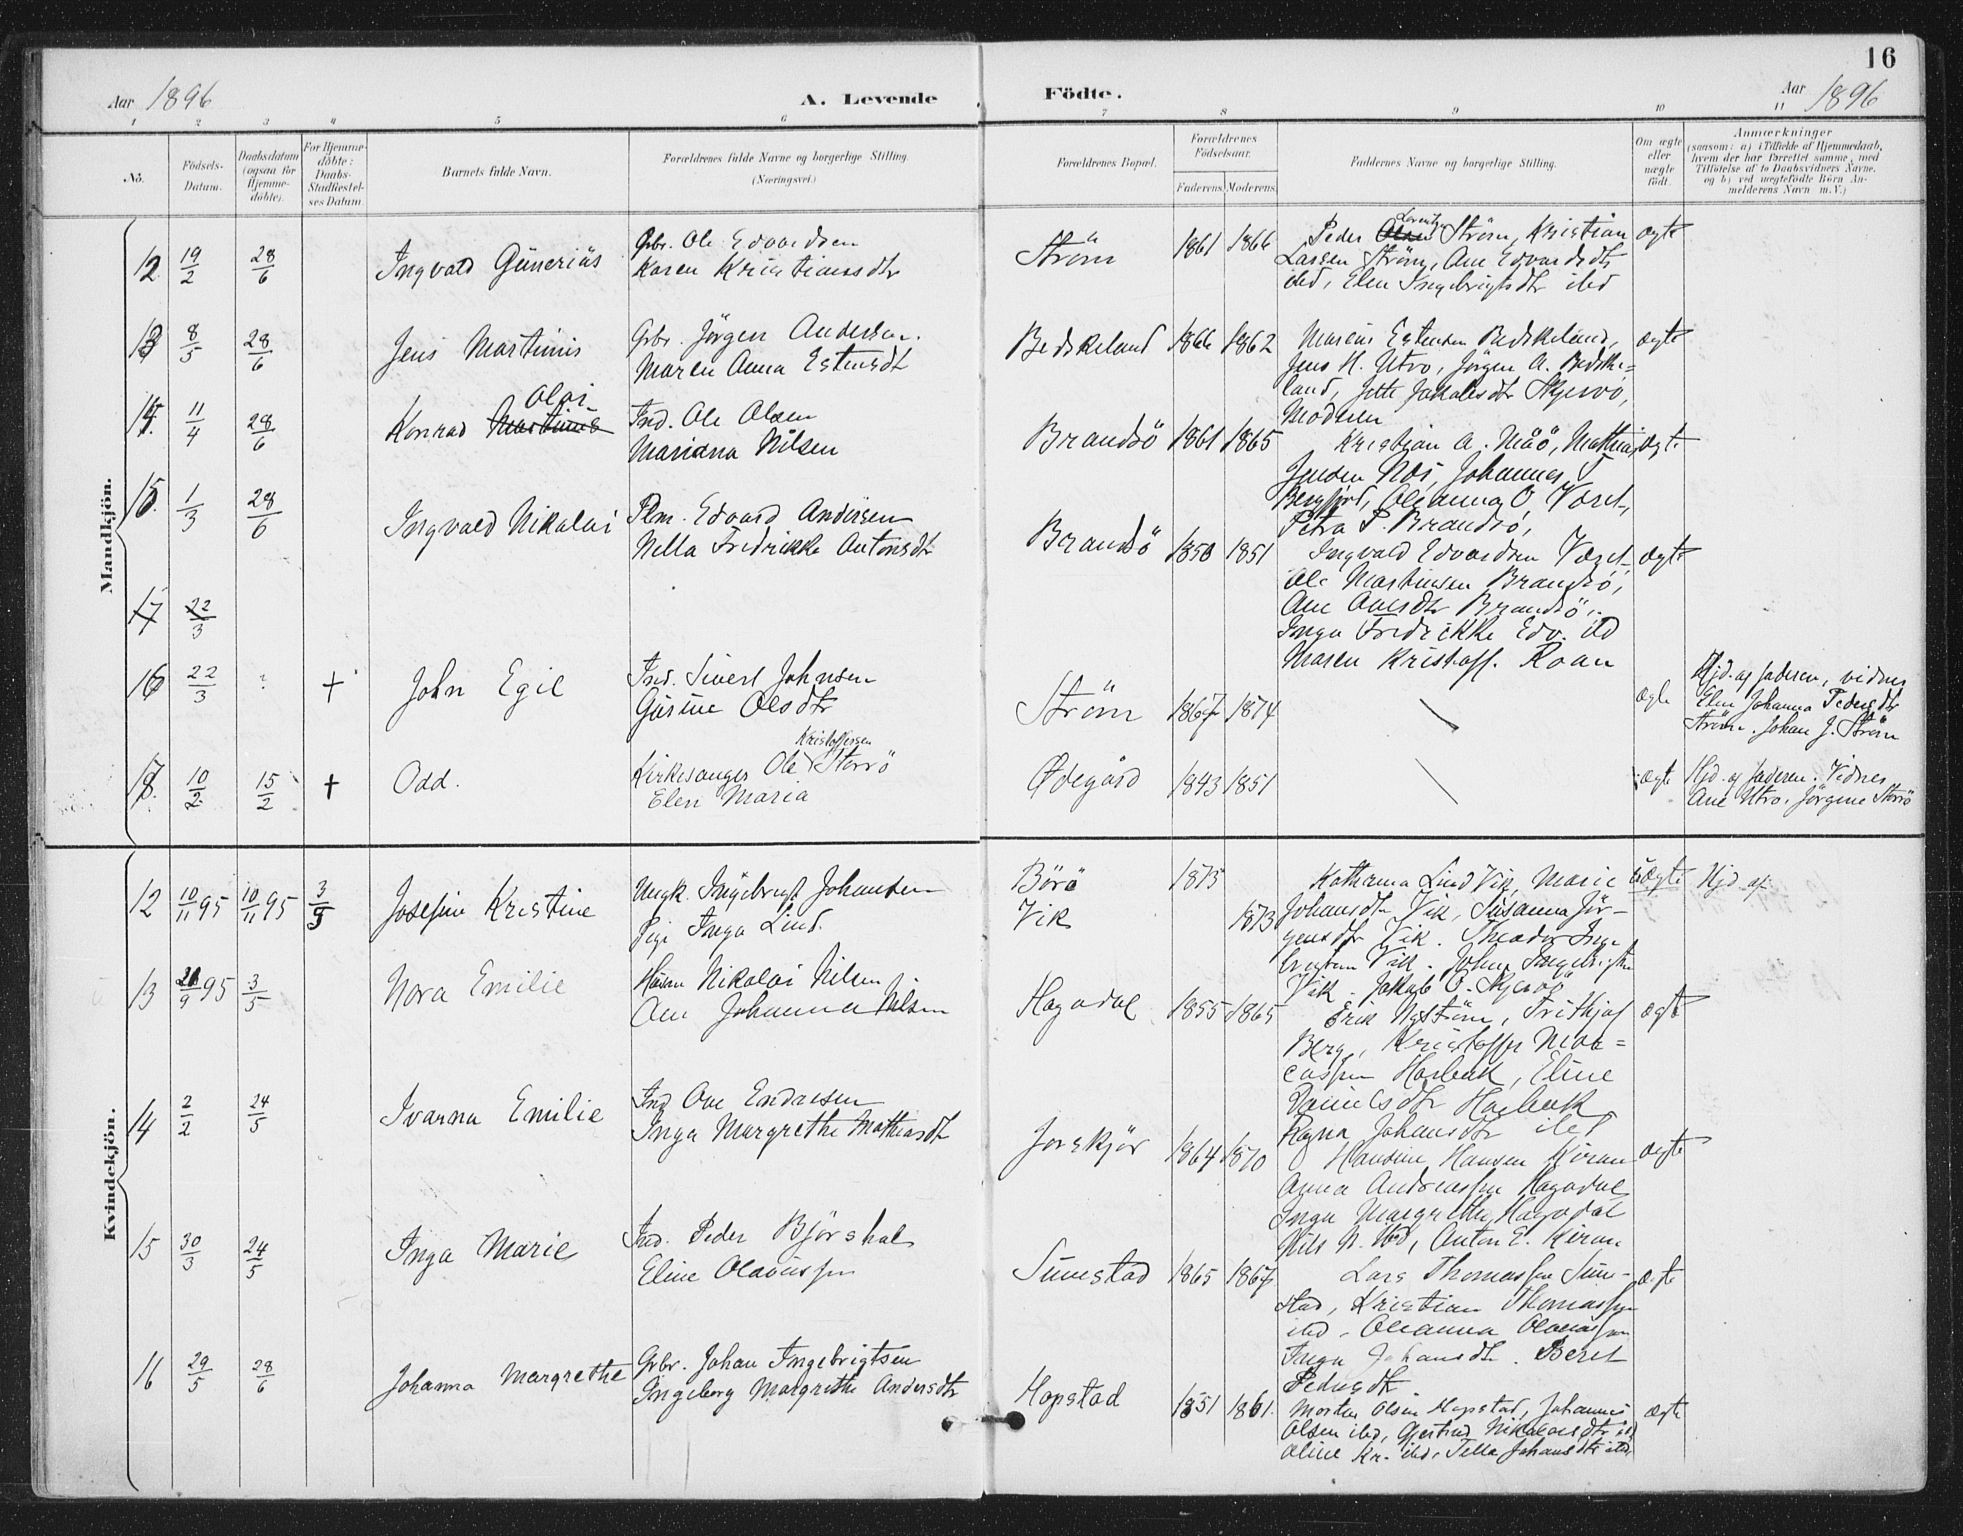 16
Aar 1896
A. Levende
Födte.
Aar 1896
1 2 3 4 5 6 7 8 9 10 11
No.
Födsels-Datum.
Daabsdatum (ogsaa for Hjemme-döbte).
For Hjemme-döbte: Daabs-Stadfæstel-ses Datum.
Barnets fulde Navn.
Forældrenes fulde Navne og borgerlige Stilling. (Næringsvei.)
Forældrenes Bopæl.
Forældrenes Födselsaar.
Faderens. Moderens.
Faddernes Navne og borgerlige Stilling.
Om ægte eller uægte födt.
Anmærkninger
(saasom: a) i Tilfælde af Hjemmedaab, hvem der har forrettet samme, med Tilföielse af to Daabsvidners Navne. og b) ved uægtefödte Börn An-melderens Navn m. V.)
Mandkjön.
12 19/2 28/6 Ingvald Güneriüs
Gbr. Ole Edvardsen
Karen Kristiansdtr
Ström 1861 1866
Peder Lorentz Ström, Kristian
Lassen Ström, Ane Edvardsdtr
ibd, Elen Ingebrigtsdtr ibd
ægte
13 8/5 28/6 Jens Martinus
Gbr. Jörgen Andersen.
Maren Anna Estensdt
Bedskeland 1866 1862
Marius Estensen Bedskeland,
Jens H. Utvo, Jörgen A. Bedske-
land, Jette Jakobsdtr Skjervö,
Moderen
ægte
11/4 28/6 Konrad Martinüs Olai
Ind. Ole Olsen
Mariana Nilsen
Brandsö 1861 1865
Kristian A. Måö, Mathias
Næs, Johannes
Oleanna O. Været,
Petra P. Brandsö,
ægte
15 1/3 28/6 Ingvald Nikolai
Plm. Edvard Andersen
Nella Fredrikke Antonsdt
Brandsö 1850 1851
Ingvald Edvardsen Været
Ole Martinsen Brandsö,
Ane Anesdtr Brandsö,
Inga Fredrikke Edv. ibd
Maren Kristoff. Roan
ægte
17 22/3
16 22/3 + John Egil
Ind. Sivert Johnsen
Gusine Olsdtr
Ström 1867 1874
ægte
Hjd. af faderen, vidner
Elen Johanna Pedersdtr
Ström. Johan J. Ström
10/2 15/2 + Odd.
Kristoffersen
Kirkesanger Ole Storrö
Elen Maria
Ødegård 1843 1851
ægte
Hjd. af faderen. Vidner
Ane Utvo. Jörgine Storrö
Kvindekjön.
12 10/11 95 10/11 95 3/5 Josefine Kristine
Ungk. Ingebrigt Johansen
Pige Inga Lind.
Börö 1875
Vik 1873
Kathrina Lind Vik, Marie
Johansdtr Vik, Susanna Jör-
gensdtr Vik. Theodor Inge
Vik. Johan Ingebrigtsen
Vik. Jakob O. Skjervö
Uægte
Hjd. af
13 9 95 3/5 Nora Emilie
Nikolai Nilsen
Ane Johanna Nilsen
Hagadal 1855 1865
Erik Nyström, Frithjof
Berg, Kristoffer
Harbak, Eline
Danielsdtr Harbak
Ragna Johansdtr ibd
ægte
14 2/2 24/5 Ivarna Emilie
Ind Ove Endresen
Inga Margrethe Mathiasdt
Jorskjör 1864 1870
Hansine Hansen Kiran
Anna Andreassen Hagadal
Inga Margrethe Hagadal
Nils N. ibd, Anton E. Kiran
ægte
15 30/3 24/5 Inga Marie
Ind. Peder Björshol
Eline Olaussen
Sumstad 1865 1867
Lars Thomassen Sum-
stad, Kristian Thomassen
ibd. Oleanna Olaussen
Inga Johansdtr. Beret
Pedersdtr.
ægte
16 29/5 28/6 Johanna Margrethe
Gbr. Johan Ingebrigtsen
Ingeborg Margrethe Andersdtr
Hopstad 1851 1861.
Morten Olsen Hopstad, Johannes
Olsen ibd, Gjertrud Nikolaisdtr ibd
Oline Kr. ibd, Tella Johansdtr ibd,
ægte